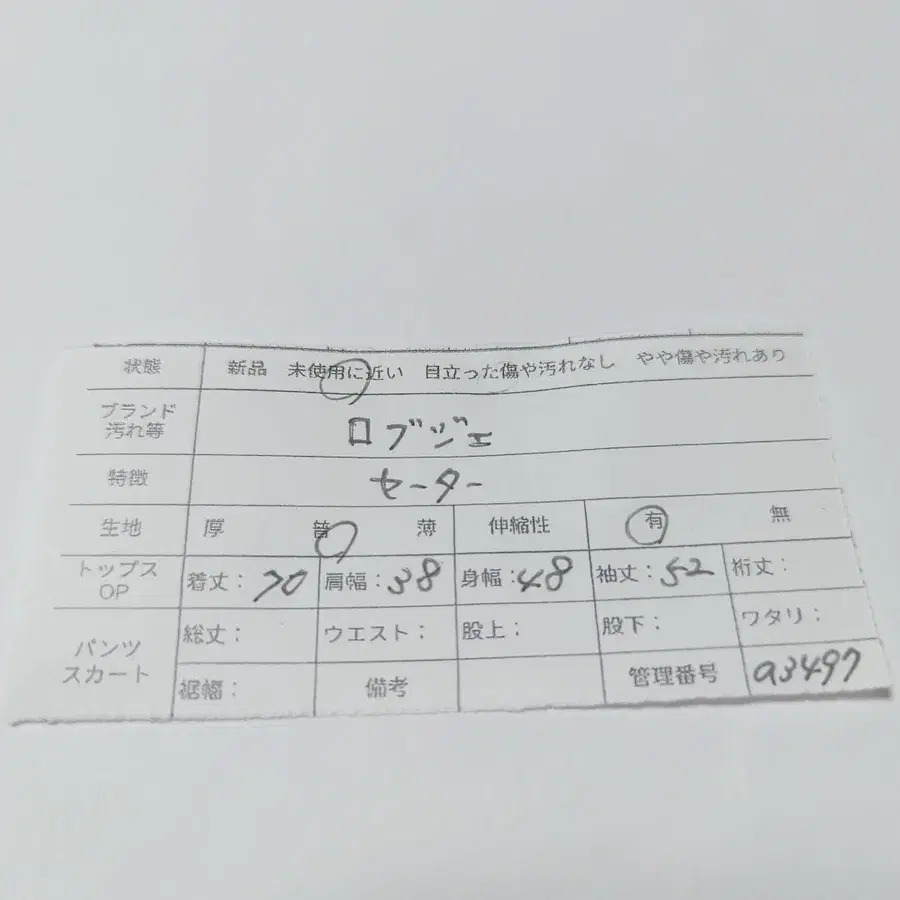 状態 新品 未使用に近い 目立った傷や汚れなし やや傷や汚れあり
ブランド
汚れ等 ロブジェ
特徴 セーター
生地 厚 普 薄 伸縮性 有 無
トップス
OP 着丈：70 肩幅：38 身幅：48 袖丈：52 裄丈：
パンツ
スカート 総丈： ウエスト： 股上： 股下： ワタリ：
裾幅： 備考 管理番号 a3497